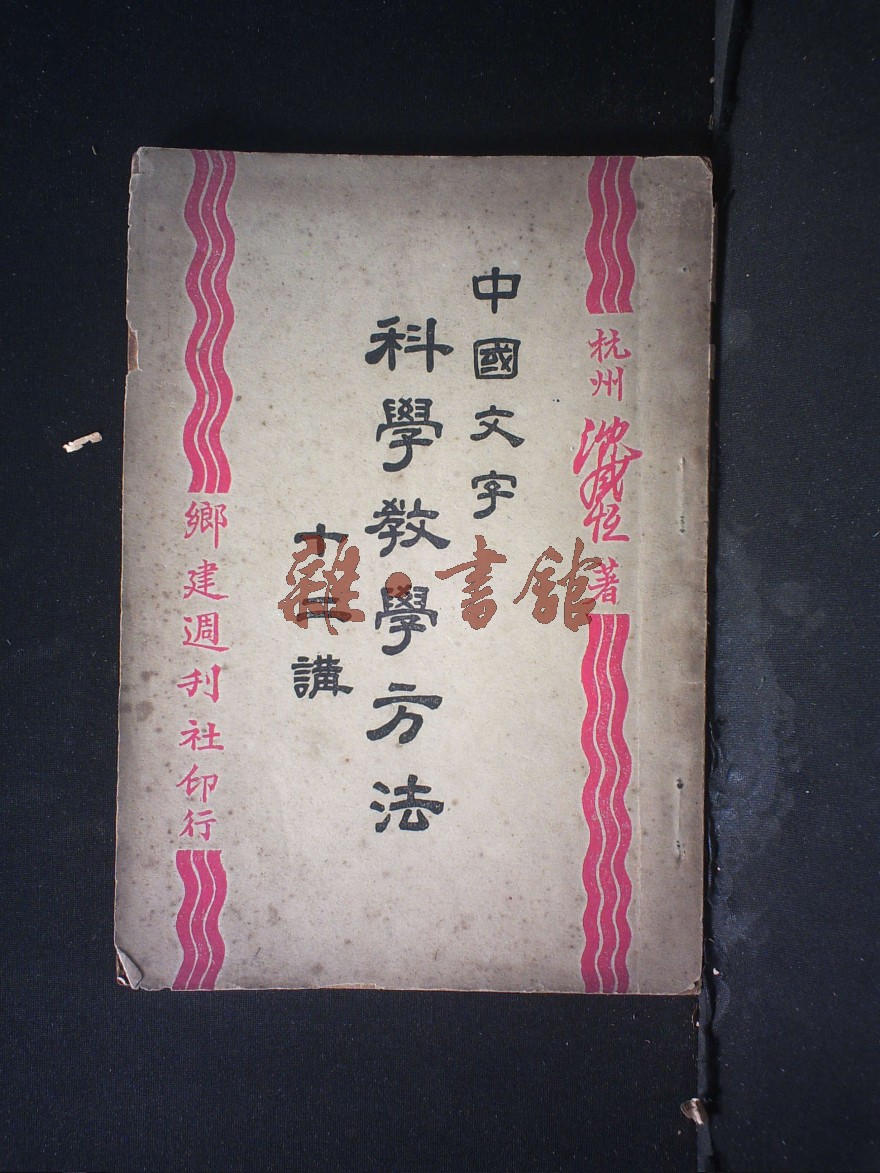 杭州 沈恒 著
中國文字
科學教學方法
十講
鄉建週刊社印行
雜·書館